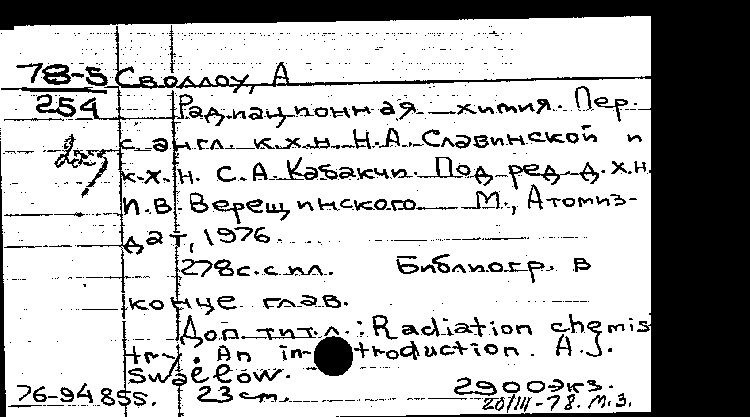 78-5 Своллоу, А
254 Радиационная химия. Пер.
с англ. к.х.н. Н.А. Славинской и
к.х.н. С.А. Кабакчи. Под ред. д.х.н.
И.В. Верещинского. М., Атомиз-
дат, 1976.
278с. с ил. Библиогр. в
конце глав.
Доп. тит. л.: Radiation chemis
try. An in- troduction. A.J.
Swallow.
76-94855. 23 см. 2900экз.
20/III-78. М.З.